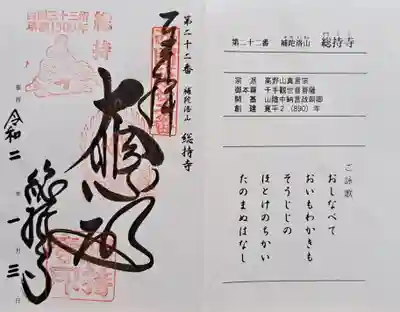 第二十二番 補陀洛山 総持寺
宗派 高野山真言宗
御本尊 千手観世音菩薩
開基 山陰中納言政朝卿
創建 寛平2（890）年
ご詠歌
おしなべて
おいもわかきも
そうじじの
ほとけのちかい
たのまぬはなし
第二十二番 補陀洛山 総持寺
奉拝
西国三十三所
草創1300年
総持
総持寺
令和二年一月三日